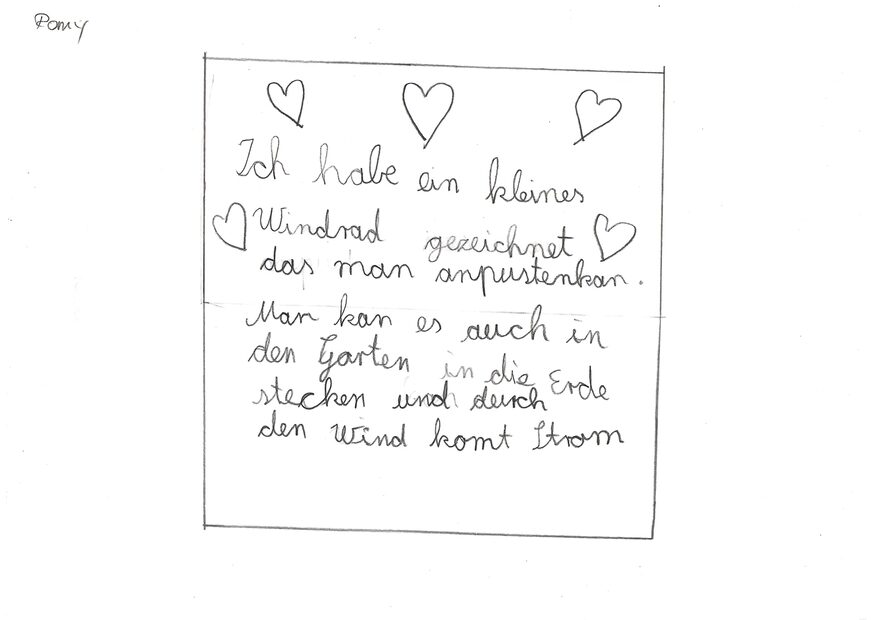 Romy
Ich habe ein kleines
Windrad gezeichnet
das man anpustenkan.
Man kan es auch in
den Garten in die Erde
stecken und durch
den Wind komt Strom